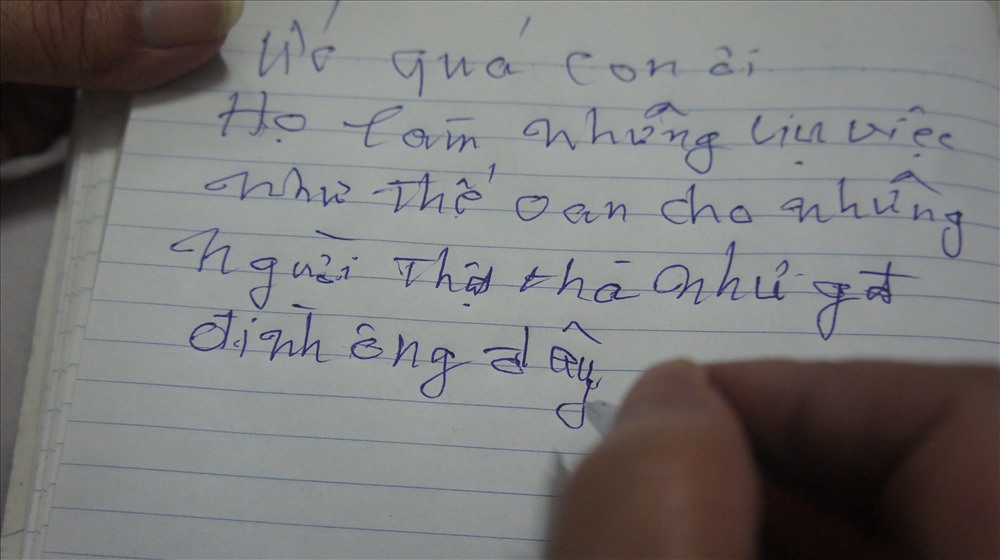 Ức quá con ơi
Họ làm những vịu việc
như thế oan cho những
người thật thà như gđ
đình ông đây